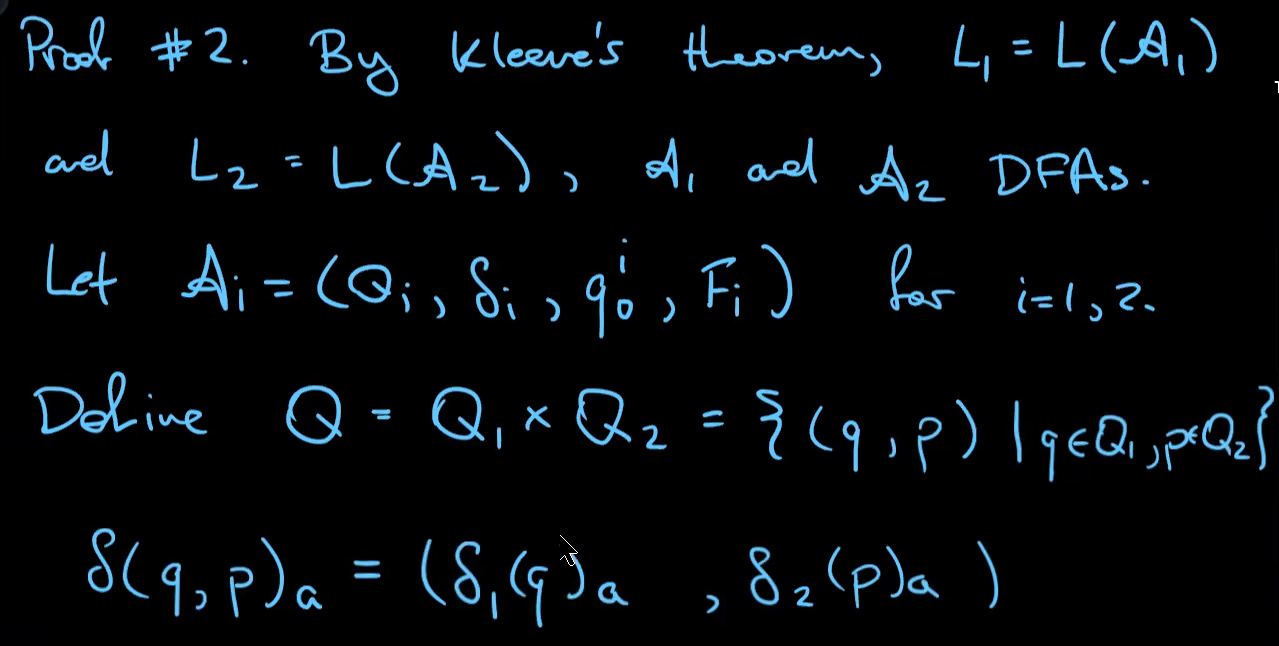 Proof #2. By Kleene's theorem, L₁ = L(A₁)
and L₂ = L(A₂), A₁ and A₂ DFAs.
Let Aᵢ = (Qᵢ, δᵢ, q₀ⁱ, Fᵢ) for i=1,2.
Define Q = Q₁ × Q₂ = {(q, p) | q∈Q₁, p∈Q₂}
δ(q, p)ₐ = (δ₁(q)ₐ , δ₂(p)ₐ )